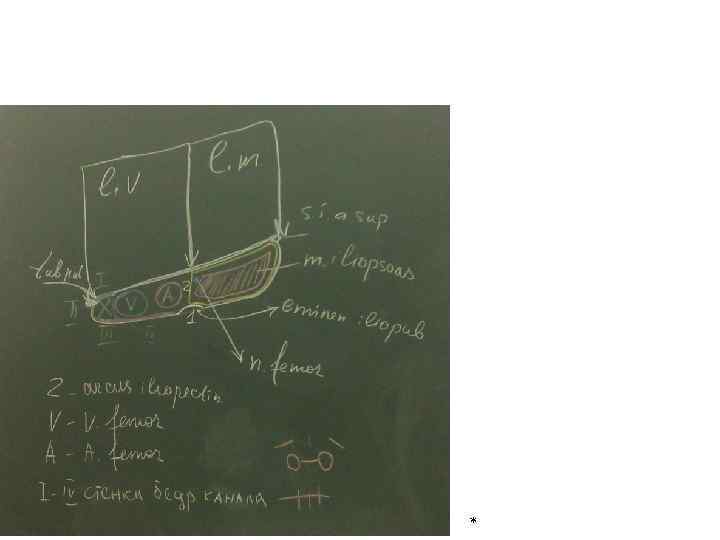 l.v
l.m.
s.i.a sup
m. iliopsoas
tub pub
I
II
V
A
2
1
eminen iliopub
III
IV
n. femor
2 - arcus iliopectin
V - V. femor
A - A. femor
I-IV стенки бедр канала
*